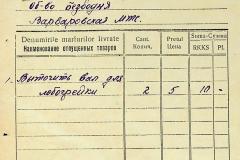 Об-во безбодня
Варваровская МТС.
Denumirea marfurilor livrate
Наименование отпущенных товаров
Cant.
Колич.
Prețul
Цена
Suma-Сумма
RKKS
Pf.
1. Выточить вал для
лобогрейки 2 5 10 -